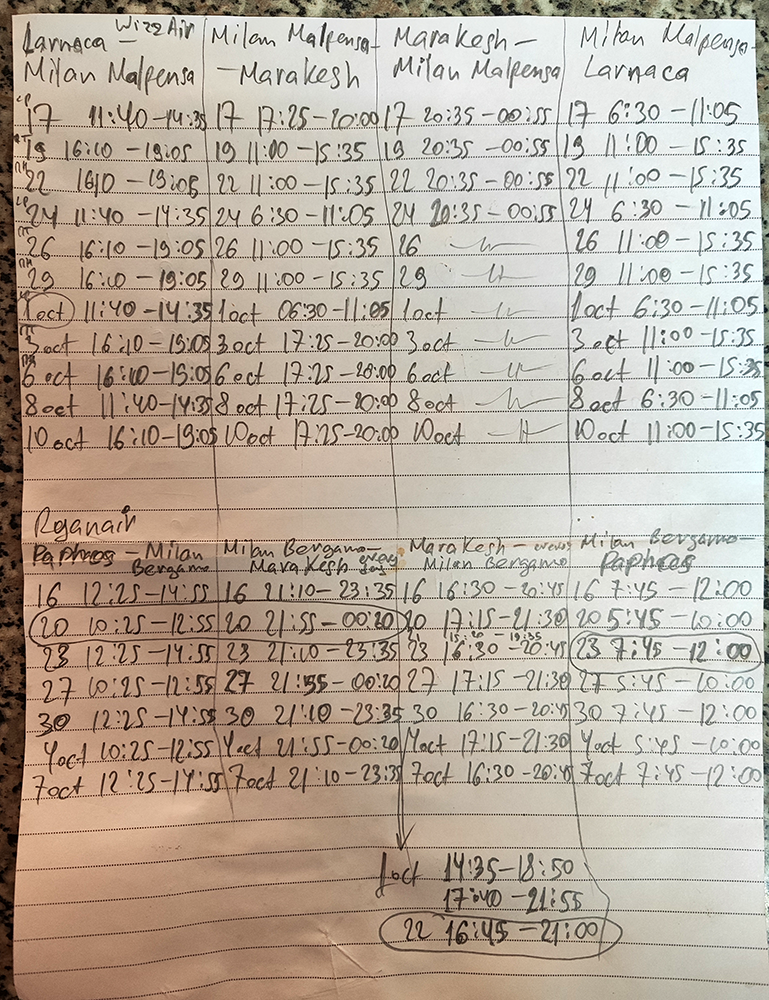 Larnaca – WizzAir Milan Malpensa– Marakesh – Milan Malpensa–
Milan Malpensa –Marakesh Milan Malpensa Larnaca
ср 17 11:40 –14:35 17 17:25–20:00 17 20:35–00:55 17 6:30 –11:05
пт 19 16:10 –19:05 19 11:00 –15:35 19 20:35–00:55 19 11:00 –15:35
пн 22 1610 –19:05 22 11:00 –15:35 22 20:35–00:55 22 11:00 –15:35
ср 24 11:40 –14:35 24 6:30 –11:05 24 20:35–00:55 24 6:30 –11:05
пт 26 16:10 –19:05 26 11:00 –15:35 26 –"– 26 11:00 –15:35
пн 29 16:10 –19:05 29 11:00 –15:35 29 –"– 29 11:00 –15:35
ср 1oct 11:40 –14:35 1oct 06:30–11:05 1oct –"– 1oct 6:30 –11:05
пт 3oct 16:10–19:05 3oct 17:25–20:00 3oct –"– 3oct 11:00–15:35
пн 6oct 16:10–19:05 6oct 17:25–20:00 6oct –"– 6oct 11:00–15:35
8oct 11:40–14:35 8oct 17:25–20:00 8oct –"– 8oct 6:30–11:05
10oct 16:10–19:05 10oct 17:25–20:00 10oct –"– 10oct 11:00–15:35
Ryanair
Paphos – Milan Milan Bergamo– Marakesh – every Milan Bergamo–
Bergamo Marakesh every day Milan Bergamo Paphos
16 12:25–14:55 16 21:10–23:35 16 16:30–20:45 16 7:45 –12:00
20 10:25–12:55 20 21:55–00:20 20 17:15–21:30 20 5:45 –10:00
15:20 – 19:35
23 12:25–14:55 23 21:10–23:35 23 16:30–20:45 23 7:45 –12:00
27 10:25–12:55 27 21:55–00:20 27 17:15–21:30 27 5:45–10:00
30 12:25–14:55 30 21:10–23:35 30 16:30–20:45 30 7:45 –12:00
4oct 10:25–12:55 4oct 21:55–00:20 4oct 17:15–21:30 4oct 5:45 –10:00
7oct 12:25–14:55 7oct 21:10–23:35 7oct 16:30–20:45 7oct 7:45–12:00
1oct 14:35–18:50
17:40 –21:55
22 16:45–21:00